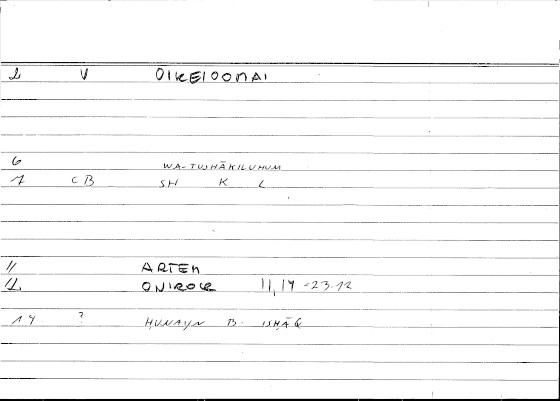 2 V OIKEIOOMAI
6 WA-TUSHĀKILUHUM
7 CB SH K L
11 ARTEM
12 ONIROCR 11,14-23.12
14 ? HUNAYN B. ISHĀQ